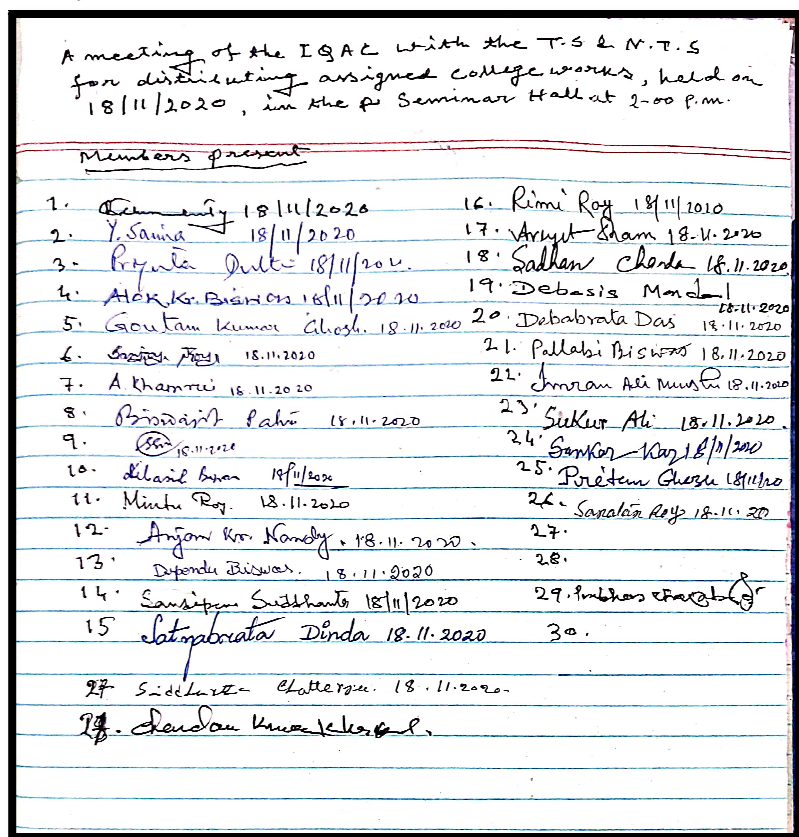 A meeting of the IQAC with the T.S & N.T.S
for distributing assigned college works, held on
18/11/2020, in the Seminar Hall at 2-00 p.m.
Members present
1. 18/11/2020
2. Y. Samira 18/11/2020
3. 18/11/20
4. Alok Kr. Biswas 18/11/2020
5. Goutam Kumar Ghosh. 18.11.2020
6. 18.11.2020
7. A. Khamrui 18.11.2020
8. Biswajit 18.11.2020
9. 18.11.2020
10. 18/11/2020
11. Mintu Roy. 18.11.2020
12. Anjan Kr. Nandy. 18.11.2020.
13. Dipendu Biswas. 18.11.2020
14. 18/11/2020
15 Satyabrata Dinda 18.11.2020
27 Siddhartha Chatterjee. 18.11.2020
28. Chandan
16. Rimi Roy 18/11/2020
17. 18.11.2020
18. Sadhan 18.11.2020
19. Debasis Mondal
18.11.2020
20. Debabrata Das 18.11.2020
21. Pallabi Biswas 18.11.2020
22. Imran Ali 18.11.2020
23. Sukur Ali 18.11.2020.
24. Sankar 18/11/2020
25. Pritam Ghosh 18/11/20
26. Sanatan Roy 18.11.20
27.
28.
29.
30.